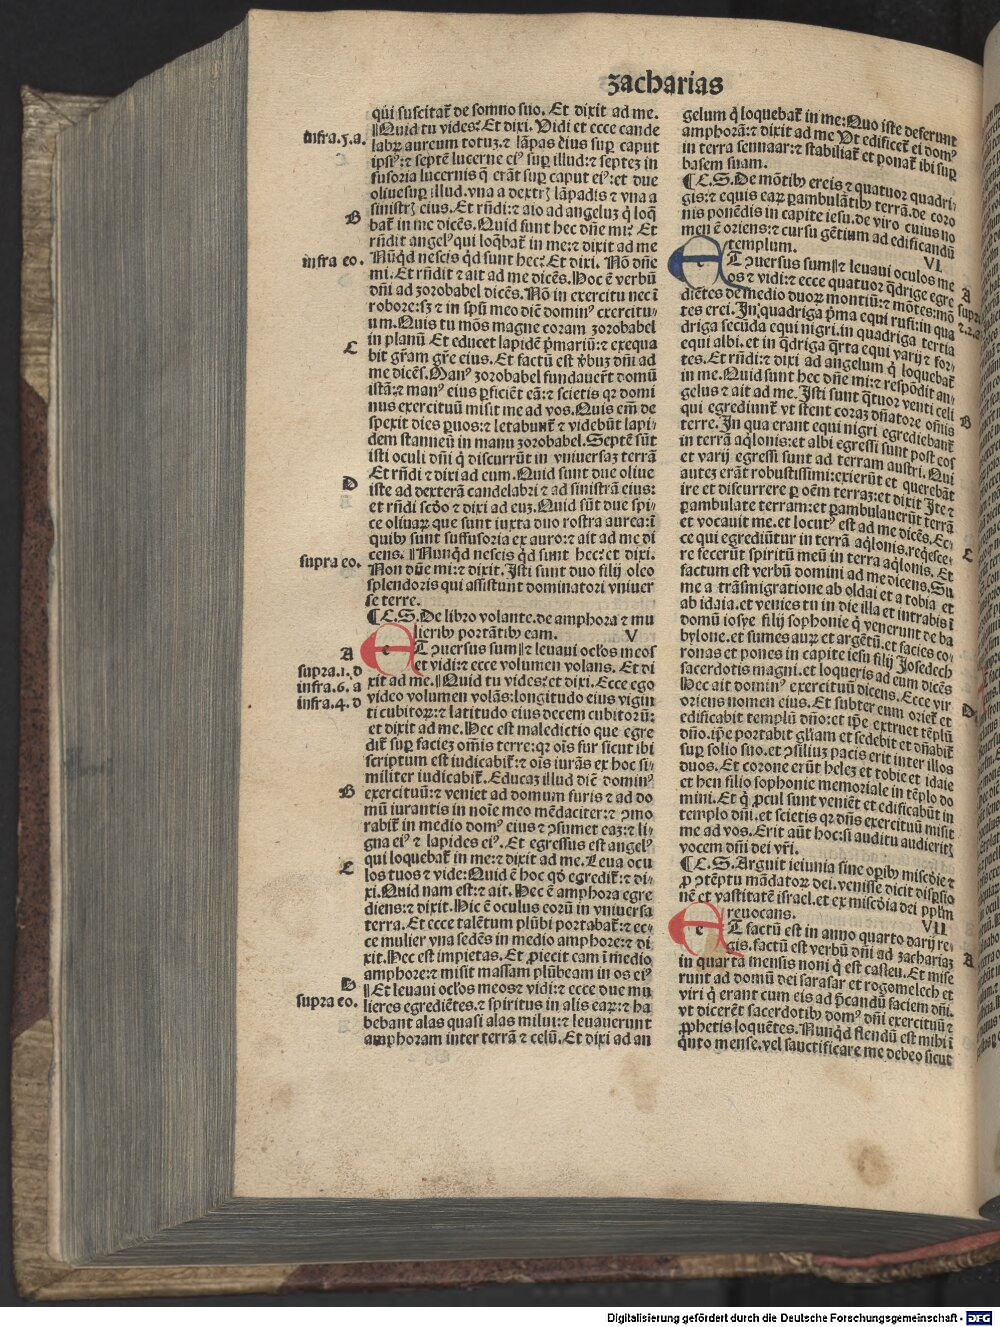 zacharias
qui suscitat̄ de somno suo. Et dixit ad me.
Quid tu vides? Et dixi. Vidi et ecce cande
infra.5.a.
labꝝ aureum totuꝫ.⁊ lāpas eius sup caput
ipsiꝰ:⁊ septē lucerne eiꝰ sup illud:⁊ septeꝫ in
fusoria lucernis q̄ erāt sup caput eiꝰ:et due
oliue sup illud.vna a dextrꝭ lāpadis ⁊ vna a
sinistrꝭ eius. Et rn̄di:⁊ aio ad angeluꝫ q̇ loq̄
B
bat̄ in me dicēs. Quid sunt hec dn̄e mi? Et
rn̄dit angelꝰ qui loq̄bat̄ in me:⁊ dixit ad me
infra eo.
Nūqd nescis qd sunt hec? Et dixi. Nō dn̄e
mi. Et rn̄dit ⁊ ait ad me dicēs. Hoc ē verbū
dn̄i ad zorobabel dicēs. Nō in exercitu nec ī
robore:sꝫ in spū meo dicit dominꝰ exercitu/
um. Quis tu mōs magne coram zorobabel
in planū Et educet lapidē p̄mariū:⁊ exequa
C
bit gr̄am gr̄e eius. Et factū est v̄buꝫ dn̄i ad
me dicēs. Manꝰ zorobabel fundauer̄t domū
istā:⁊ manꝰ eius ꝑficiēt eā:⁊ scietis qꝛ domi
nus exercituū misit me ad vos. Quis em̄ de
spexit dies ꝑuos:⁊ letabunt̄ ⁊ videbūt lapi/
dem stanneū in manu zorobabel. Septē sūt
isti oculi dn̄i q̇ discurrūt in vniuersaꝫ terrā
D
Et rn̄di ⁊ dixi ad eum. Quid sunt due oliue
iste ad dexterā candelabri ⁊ ad sinistrā eius:
et rn̄di scd̄o ⁊ dixi ad euꝫ. Quid sūt due spi/
ce oliuaꝝ que sunt iuxta duo rostra aurea:ī
quibꝰ sunt suffusoria ex auro:⁊ ait ad me di
cens. Nunqd nescis qd sunt hec? et dixi.
supra eo.
Non dn̄e mi:⁊ dixit. Isti sunt duo filij oleo
splendoris qui assistunt dominatori vniuer
se terre.
¶C.S. De libro volante.de amphora ⁊ mu
lieribꝰ portātibꝰ eam. V
A
ET ꝯuersus sum ⁊ leuaui ocl̓os meos
et vidi:⁊ ecce volumen volans. Et di
supra.1.d
xit ad me. Quid tu vides? et dixi. Ecce ego
infra.6.a
video volumen volās:longitudo eius vigin
infra.4.d
ti cubitoꝝ:⁊ latitudo eius decem cubitorū:
et dixit ad me. Hec est maledictio que egre
dit̄ sup facieꝫ om̄is terre:qꝛ oīs fur sicut ibi
scriptum est iudicabit̄:⁊ oīs iurās ex hoc si/
militer iudicabit̄. Educaꝫ illud dicit dominꝰ
B
exercituū:⁊ veniet ad domum furis ⁊ ad do
mū iurantis in noīe meo mēdaciter:⁊ ꝯmo
rabit̄ in medio domꝰ eius ⁊ ꝯsumet eaꝫ:⁊ li/
gna eiꝰ ⁊ lapides eiꝰ. Et egressus est angelꝰ
qui loquebat̄ in me:⁊ dixit ad me. Leua ocu
C
los tuos ⁊ vide: Quid ē hoc qd egredit̄:⁊ di/
xi. Quid nam est:⁊ ait. Hec ē amphora egre
diens:⁊ dixit. Hic ē oculus eorū in vniuersa
terra. Et ecce talētum plūbi portabat̄:⁊ ec/
ce mulier vna sedēs in medio amphore:⁊ di
xit. Hec est impietas. Et ꝓiecit eam ī medio
amphore:⁊ misit massam plūbeam in os eiꝰ
D
Et leuaui ocl̓os meos ⁊ vidi:⁊ ecce due mu
supra eo.
lieres egrediētes.⁊ spiritus in alis eaꝝ:⁊ ha
bebant alas quasi alas milui:⁊ leuauerunt
amphoram inter terrā ⁊ celū. Et dixi ad an
gelum q̇ loquebat̄ in me: Quo iste deferunt
amphorā:⁊ dixit ad me Vt edificet̄ ei domꝰ
in terra sennaar:⁊ stabiliat̄ et ponat̄ ibi sup
basem suam.
¶C.S. De mōtibꝰ ereis ⁊ quatuor quadri/
gis:⁊ equis eaꝝ ꝑambulātibꝰ terrā.de coro
nis ponēdis in capite iesu.de viro cuius no
men ē oriens:⁊ cursu gētium ad edificandū
templum. VI
ET ꝯuersus sum ⁊ leuaui oculos me
A
os ⁊ vidi:⁊ ecce quatuor q̄drige egre
diētes de medio duoꝝ montiū:⁊ mōtes:mō
tes erei. In quadriga p̄ma equi rufi:in qua
driga secūda equi nigri.in quadriga tertia
equi albi.et in q̄driga q̄rta equi varij ⁊ for/
tes. Et rn̄di:⁊ dixi ad angelum q̇ loquebat̄
in me. Quid sunt hec dn̄e mi:⁊ respōdit an/
gelus ⁊ ait ad me. Isti sunt q̄tuor venti celi
qui egrediunt̄ vt stent coraꝫ dn̄atore om̄is
B
terre. In qua erant equi nigri egrediebant̄
in terrā aq̇lonis:et albi egressi sunt post eos
et varij egressi sunt ad terram austri. Qui
auteꝫ erāt robustissimi:exierūt et querebāt
ire et discurrere ꝑ oēm terraꝫ:et dixit Ite ⁊
ꝑambulate terram:et ꝑambulauerūt terrā
et vocauit me.et locutꝰ est ad me dicēs. Ec/
C
ce qui egrediūtur in terrā aq̇lonis.req̇esce/
re fecerūt spiritū meū in terra aq̇lonis. Et
factum est verbū domini ad me dicens. Su
me a trāsmigratione ab oldai et a tobia et
ab idaia.et venies tu in die illa et intrabis
domū iosye filij sophonie q̇ venerunt de ba
bylone.et sumes auꝝ et argētū.et facies co/
ronas et pones in capite iesu filij Josedech
sacerdotis magni.et loqueris ad eum dicēs
Hec ait dominꝰ exercituū dicens. Ecce vir
D
oriens nomen eius. Et subter eum oriet̄ et
edificabit templū dn̄o:et ip̄e extruet tēplū
dn̄o.ip̄e portabit gl̓iam et sedebit et dn̄abit̄
sup solio suo.et ꝯsiliuꝫ pacis erit inter illos
duos. Et corone erūt heleꝫ et tobie et idaie
et hen filio sophonie memoriale in tēplo do
mini. Et q̇ ꝓcul sunt veniēt et edificabūt in
templo dn̄i.et scietis qꝛ dn̄s exercituū misit
me ad vos. Erit aūt hoc:si auditu audieritꝭ
vocem dn̄i dei vr̄i.
¶C.S. Arguit ieiunia sine oꝑibꝰ misc̄die ⁊
ꝓ ꝯtēptu mādatoꝝ dei.venisse dicit disꝑsio
nē et vastitatē israel.et ex misc̄dia dei pplm̄
reuocans. VII
ET factū est in anno quarto darij re/
gis.factū est verbū dn̄i ad zachariaꝫ
A
in quarta mensis noni q̇ est casleu. Et mise
runt ad domū dei sarasar et rogomelech et
viri q̇ erant cum eis ad p̄candū faciem dn̄i.
vt dicerēt sacerdotibꝰ domꝰ dn̄i exercituū ⁊
ꝓphetis loquētes. Nunqd flendū est mihi ī
q̇nto mense.vel sanctificare me debeo sicut
Digitalisierung gefördert durch die Deutsche Forschungsgemeinschaft - DFG